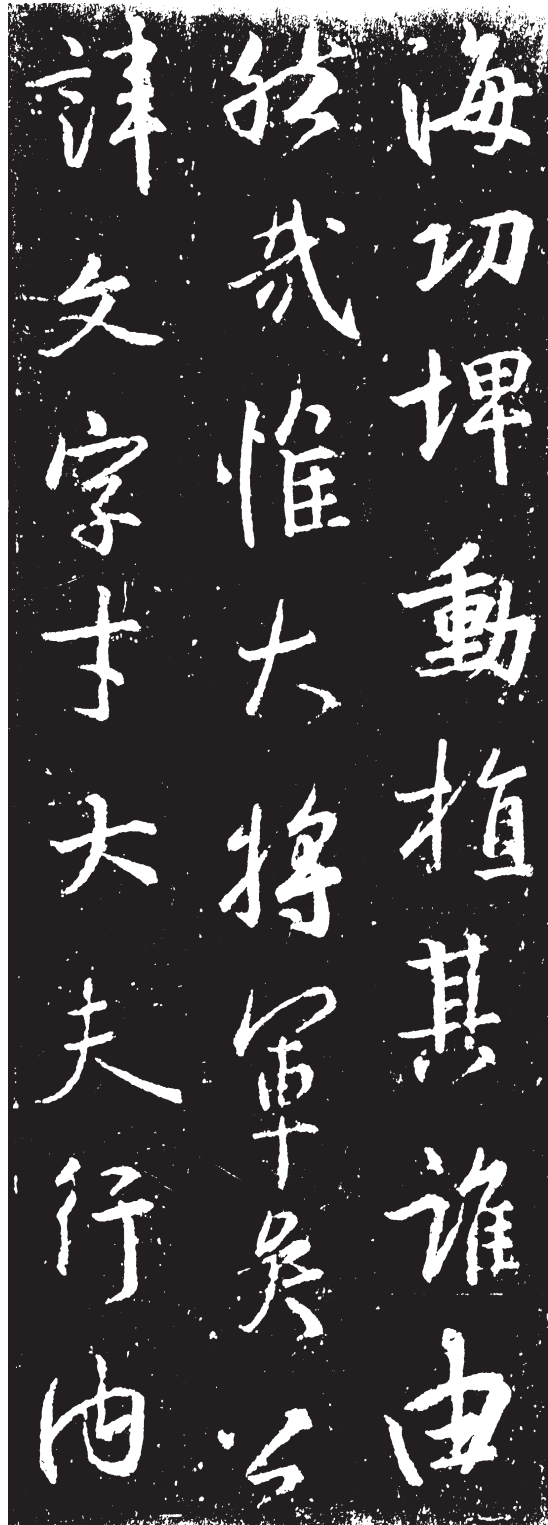 海功埤動植其誰由
然哉惟大將軍吳公
諱文字才大夫行内